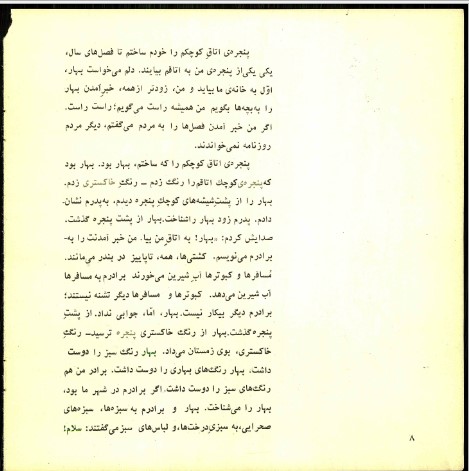 پنجره‌ی اتاق کوچکم را خودم ساختم تا فصل‌های سال،
یکی یکی‌از پنجره‌ی من به اتاقم بیایند. دلم می‌خواست بهار،
اوّل به خانه‌ی ما بیاید و من، زودتر ازهمه، خبرآمدن بهار
را به‌بچه‌ها بگویم من همیشه راست می‌گویم؛ راست راست.
اگر من خبر آمدن فصل‌ها را به مردم می‌گفتم، دیگر مردم
روزنامه نمی‌خواندند.
پنجره‌ی اتاق کوچکم را که ساختم، بهار بود. بهار بود
که‌پنجره‌ی‌کوچك اتاقم‌را رنگ زدم – رنگِ خاکستری زدم.
بهار را از پشتِ‌شیشه‌های کوچكِ پنجره دیدم. به‌پدرم نشان.
دادم. پدرم زود بهار راشناخت.بهار از پشت پنجره گذشت.
صدایش کردم: «بهار! به اتاقِ‌من بیا. من خبر آمدنت را به-
برادرم می‌نویسم. کشتی‌ها، همه، تاپاییز در بندر می‌مانند.
مُسافرها و کبوترها آب‌ِشیرین می‌خورند برادرم به مسافرها
آب شیرین می‌دهد. کبوترها و مسافرها دیگر تشنه نیستند؛
برادرم دیگر بیکار نیست.بهار، امّا، جوابی نداد.از پشتِ
پنجره‌گذشت.بهار از رنگ خاکستری پنجره ترسید– رنگِ
خاکستری، بوی زمستان می‌داد. بهار رنگ سبز را دوست
داشت. بهار رنگ‌های بهاری را دوست داشت. برادر من هم
رنگ‌های سبز را دوست داشت.اگر برادرم در شهر ما بود،
بهار را می‌شناخت. بهار و برادرم به سبزه‌ها، سبزه‌های
صحرایی،به سبزیِ‌درخت‌ها،و لباس‌های سبزمی‌گفتند: سلام!
۸